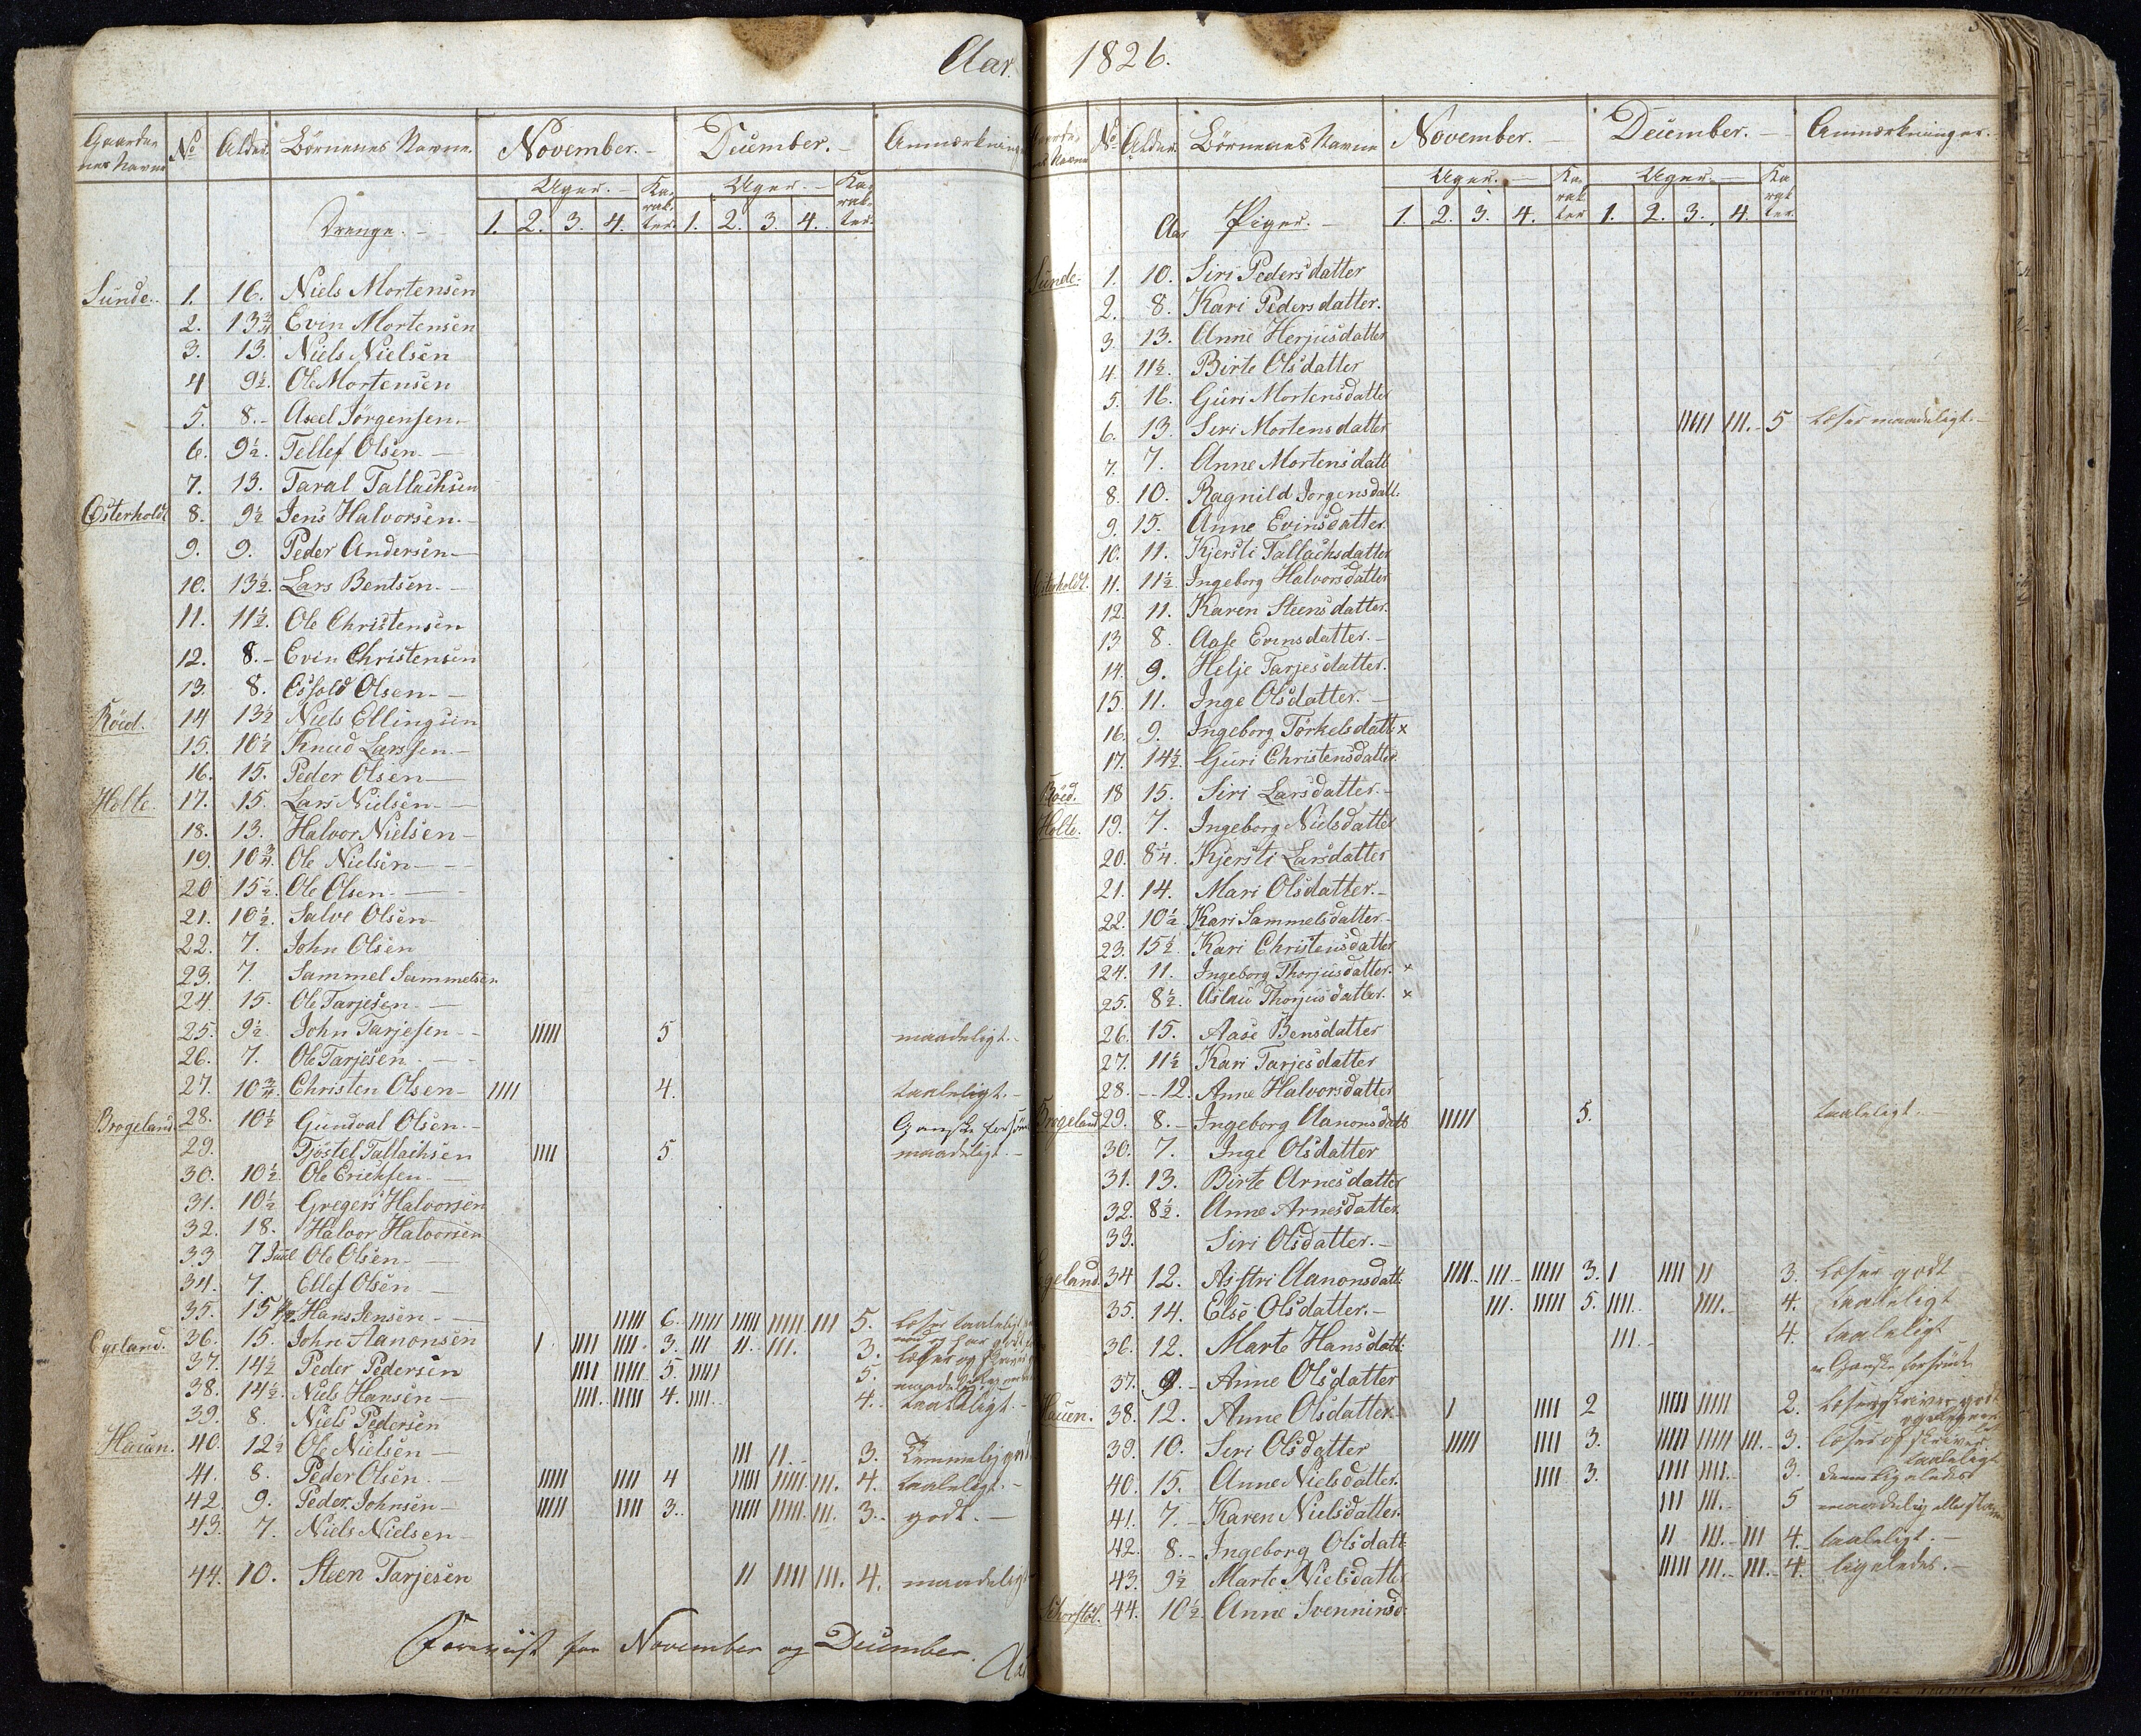 Aar.
Gaarde-
nes Navne
No
Alder.
Börnenes Navne.
November. -
December. -
Anmærkninge
Uger. -
Ka-
rak-
ter.
Uger. -
Ka-
rak-
ter.
Drenge. -
1. 2. 3. 4. 1. 2. 3. 4.
Sunde. 1. 16. Niels Mortensen
2. 13¾ Evin Mortensen
3. 13. Niels Nielsen
4 9½. Ole Mortensen
5. 8.- Axel Jørgensen.
6. 9½. Tellef Olsen. -
7. 13. Taral Tallachsen
Österholdt 8. 9½ Jens Halvorsen. -
9. 9. Peder Andersen -
10. 13½. Lars Bentsen. -
11. 11½. Ole Christensen
12. 8.- Evin Christensen
13. 8. Osfold Olsen. -
Röed. 14 13½ Niels Ellingsen
15. 10½ Knud Larssen. -
16. 15. Peder Olsen -
Holte. 17. 15. Lars Nielsen. -
18. 13. Halvor Nielsen -
19. 10¾. Ole Nielsen - -
20 15½. Ole Olsen. - -
21. 10½. Salve Olsen
22. 7. John Olsen
23. 7. Sammel Sammelsen
24. 15. Ole Tarjesen. -
25. 9½ John Tarjesen - - IIIII 5 maadeligt. -
26. 7. Ole Tarjesen. - -
27. 10¾. Christen Olsen - IIII 4. taaleligt. -
Brogeland. 28. 10½ Gundval Olsen. - Ganske forsömt
29. Tjöstel Tallachsen IIII 5 maadeligt. -
30. 10½ Ole Ericksen. -
31. 10½ Gregers Halvorsen
32. 18. Halvor Halvorsen
33 7 Ole Olsen. -
34. 7. Ellef Olsen -
35. 15 Hans Jensen. - IIIII 6. IIIII IIIII IIIII III 5. Læser taaleligt
Egeland. 36. 15. John Aanonsen I IIII IIII. 3. III II.. III. 3.
37. 14½ Peder Pedersen IIII IIIII 5. IIIII 5.
38. 14½. Niels Hansen - IIII.. IIIII 4. IIII.. 4. taaleligt. -
39. 8. Niels Pedersen
Hauen. 40. 12½ Ole Nielsen - III II.. 3. Temmelig godt
41. 8. Peder Olsen. - IIIII IIII 4 IIIII IIIII III. 4. taaleligt. -
42. 9. Peder Johnsen - IIIII IIII 3. IIIII IIIII. III. 3. godt. -
43. 7. Niels Nielsen -
44. 10. Steen Tarjesen II IIII III. 4. maadeligt
for November og December.
1826.
nes Navne
No
Alder.
Börnenes Navne
November. -
December. -
Anmærkninger.
Uger. -
Ka-
rak-
ter
Uger. -
Ka
rak
ter.
Aar Piger. -
1. 2. 3. 4. 1. 2. 3. 4.
Sunde. 1. 10. Siri Pedersdatter
2. 8. Kari Pedersdatter.
3. 13. Anne Herjusdatter
4. 11½. Birte Olsdatter
5. 16. Guri Mortensdatter
6. 13. Seri Mortensdatter IIIII III. - 5 Læser maadeligt. -
7. 7. Anne Mortensdatt
8. 10. Ragnild Jorgensdatt.
9. 15. Anne Evinsdatter.
10. 11. Kjersti Tallachsdatter
Österholdt. 11. 11½ Ingeborg Halvorsdatter
12. 11. Karen Steensdatter.
13 8. Aase Evinsdatter. -
14. 9. Helje Tarjesdatter.
15. 11. Inge Olsdatter. -
16. 9. Ingeborg Törkelsdatt x
17. 14½. Guri Christensdatter
Röed. 18 15. Siri Larsdatter. -
Holte. 19. 7. Ingeborg Nielsdatter
20. 8¼. Kjersti Larsdatter
21. 14. Mari Olsdatter. -
22. 10½ Kari Sammelsdatter. -
23. 15½ Kari Christensdatter
24. 11. Ingeborg Thorjusdatter. x
25. 8½. Aslau Thorjusdatter. x
26. 15. Aase Bensdatter
27. 11½ Kari Tarjesdatter
28. - 12. Anne Halvorsdatter
Brogeland 29. 8. - Ingeborg Aanonsdatt IIIII 5. taaleligt. -
30. 7. Inge Olsdatter
31. 13. Birte Arnesdatter
32. 8½. Anne Arnesdatter
33. Siri Olsdatter. -
Egeland. 34 12. Asstri Aanonsdatt. IIII.. III.. IIIII 3. I IIII II 3. Læser godt
35. 14. Else Olsdatter. - III. IIIII 5. IIII.. IIII. - 4. taaleligt
36. 12. Marte Hansdatt. III. - 4. taaleligt
37. 9. - Anne Olsdatter Ganske forsömt
Hauen. 38. 12. Anne Olsdatter I IIII 2 IIIII IIIII 2.
39. 10. Seri Olsdatter IIIII IIII 3. IIIII IIIII III. - 3. læser og skriver
taaleligt
40. 15. Anne Nielsdatter. IIII 3. IIII III. - 3.
41. 7. - Karen Nielsdatter. III III. - 5
42. 8. - Ingeborg Olsdatt. II III. - III 4. taaleligt. -
43. 9½ Marte Nielsdatter IIIII III. - III. - 4. ligeledes. -
44. 10½. Anne Svenninsd.